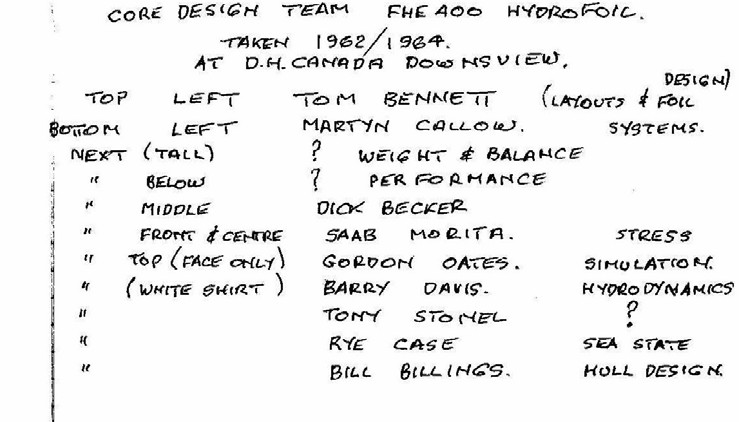 CORE DESIGN TEAM FHE 400 HYDROFOIL.
TAKEN 1962/1964.
AT D.H. CANADA DOWNSVIEW.
TOP LEFT TOM BENNETT (LAYOUTS & FOIL DESIGN)
BOTTOM LEFT MARTYN CALLOW. SYSTEMS.
NEXT (TALL) ? WEIGHT & BALANCE
" BELOW ? PERFORMANCE
" MIDDLE DICK BECKER
" FRONT & CENTRE SAAB MORITA. STRESS
" TOP (FACE ONLY) GORDON OATES. SIMULATION.
" (WHITE SHIRT) BARRY DAVIS. HYDRODYNAMICS
" TONY STONEL ?
" RYE CASE SEA STATE
" BILL BILLINGS. HULL DESIGN.